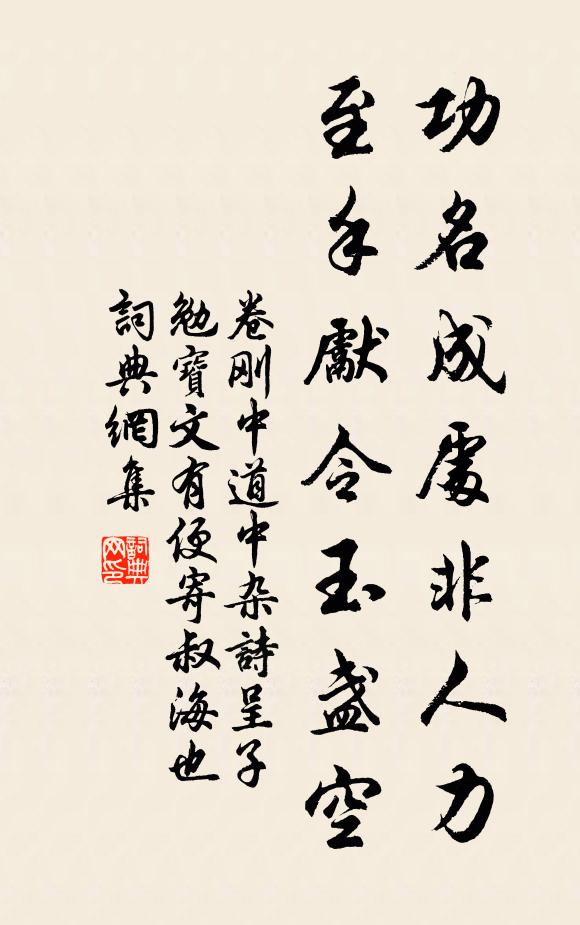 功名成處非人力
至手獻令玉盞空
卷刚中道中杂詩呈子
勉寶文有便寄叔海也
詞典網集
詞典
网印